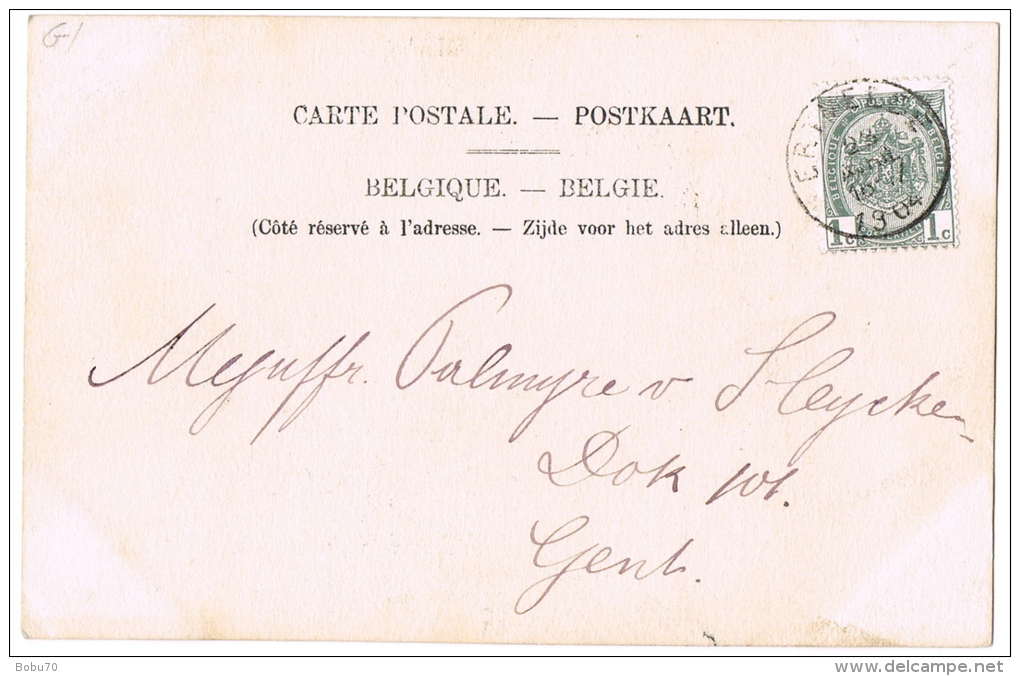 G1
CARTE POSTALE. — POSTKAART.
BELGIQUE. — BELGIE.
(Côté réservé à l'adresse. — Zijde voor het adres alleen.)
POSTES
BELGIQUE BELGIË
1c 1c
1904
Mejuffr. Palmyre v Heycke
Dok 101.
Gent.
Bobu70
delcampe.net